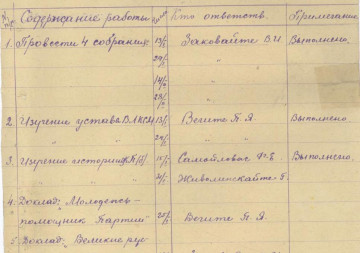 Содержание работы Кто ответств. Примечание
1. Провести 4 собрания 13/I Заковайте В.И Выполнено.
29/I "
14/II "
28/II "
2. Изучение устава ВЛКСМ 13/I Вегите Я. Я. Выполнено
" " 29/I "
3. Изучение истории Выполнено.
" "
4. Доклад: Молодежь-
помощник Партии Вегите Я. Я.
5. Доклад: Великие рус